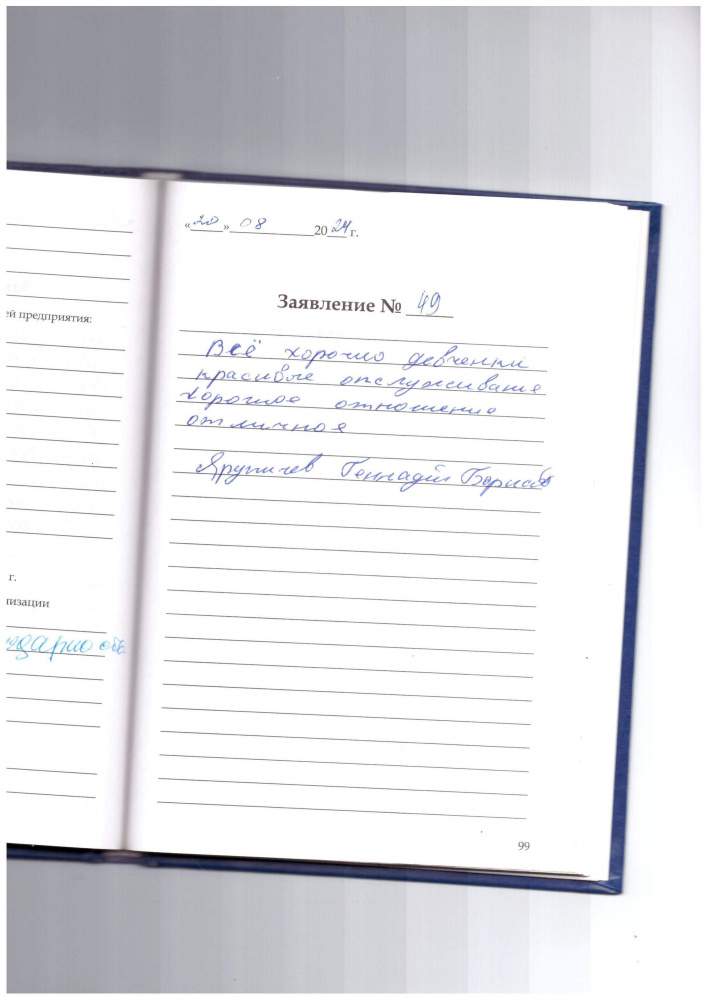 ей предприятия:
г.
низации
«20» 08 2024 г.
Заявление № 49
Всё хорошо девченки
красивые опслуживание
хорошое отношение
отличное
Геннадий
99